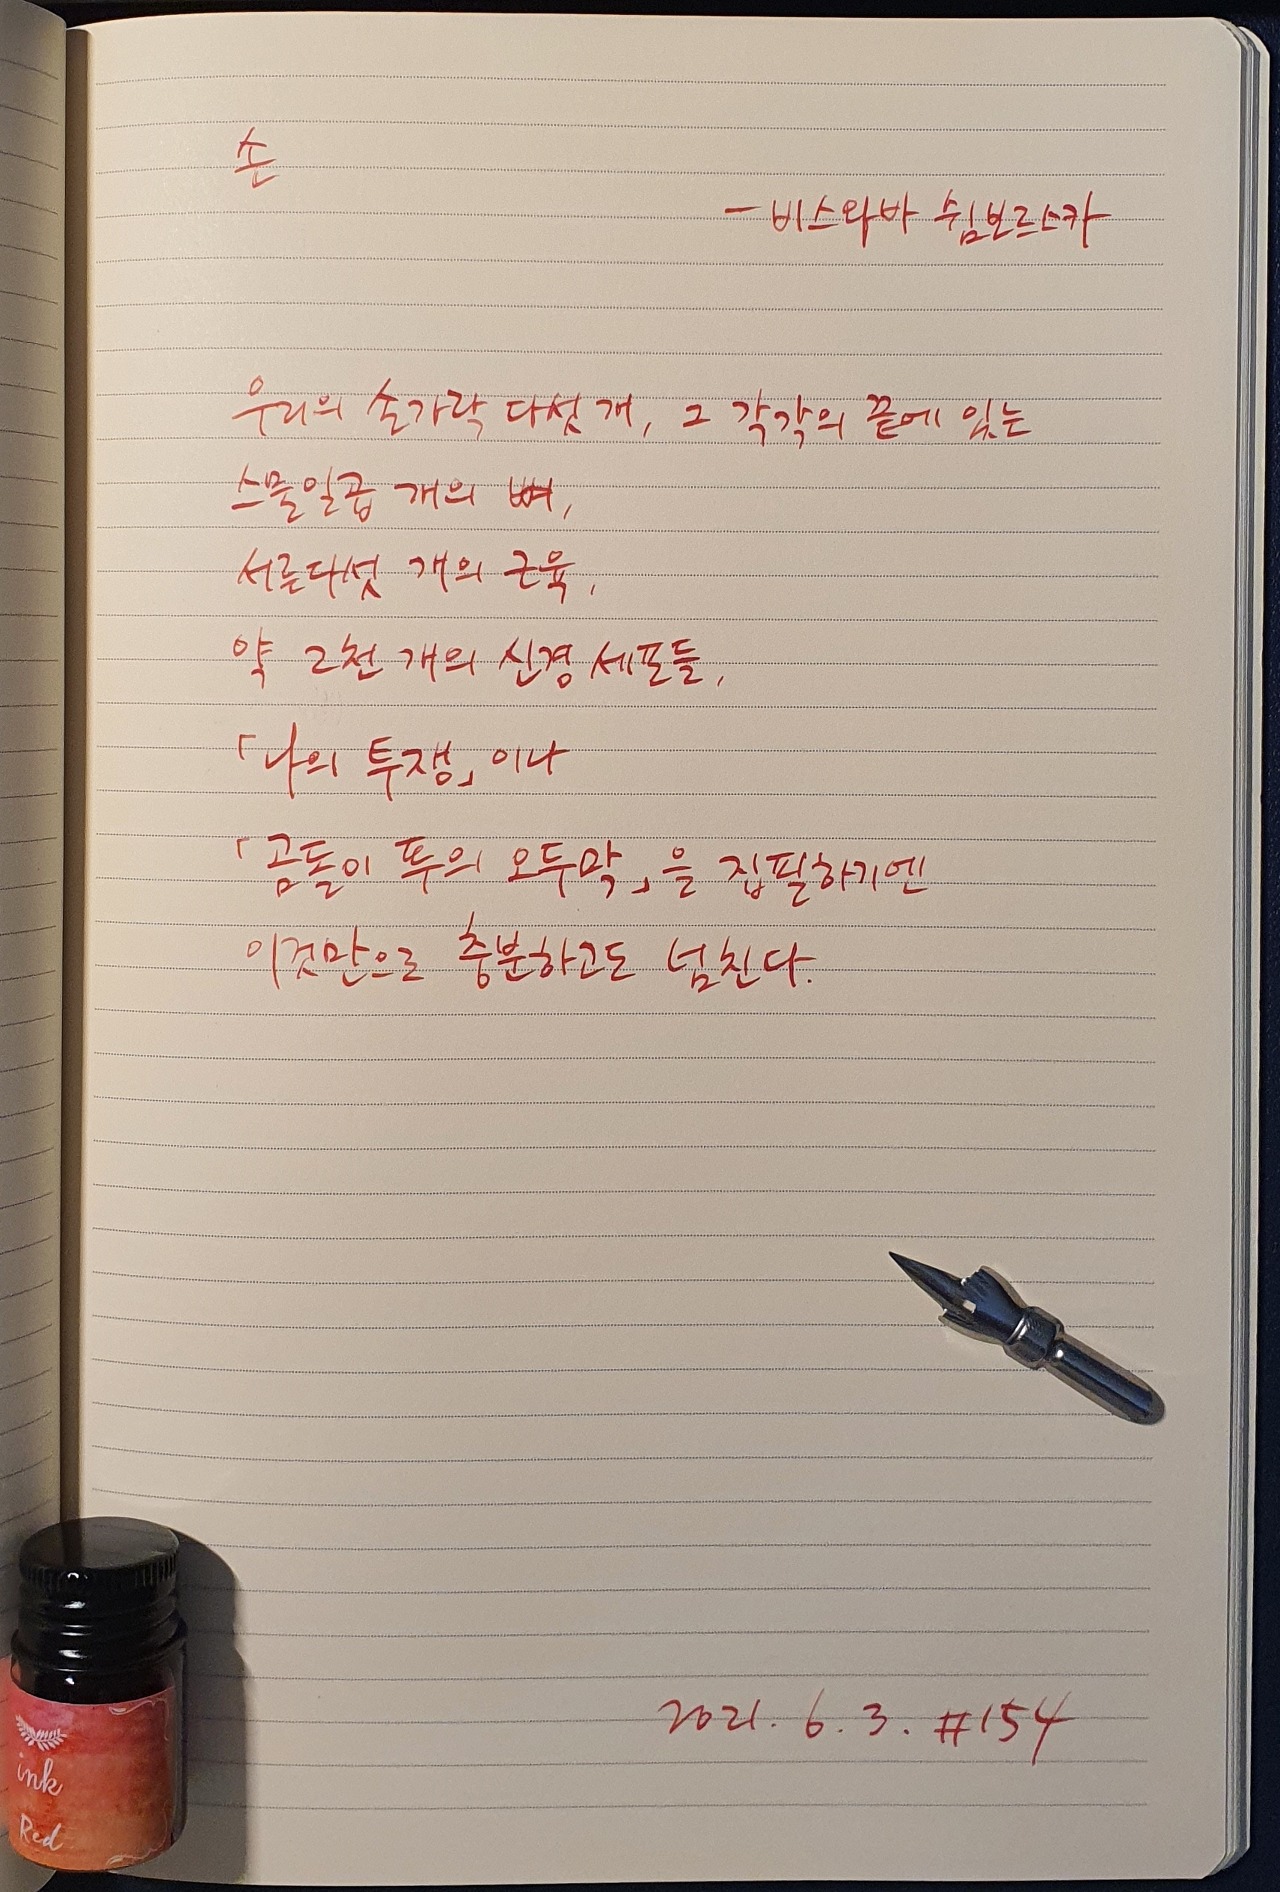 손
- 비스와바 쉼보르스카
우리의 손가락 다섯 개, 그 각각의 끝에 있는
스물일곱 개의 뼈,
서른다섯 개의 근육,
약 2천 개의 신경 세포들,
「나의 투쟁」이나
「곰돌이 푸의 오두막」을 집필하기엔
이것만으로 충분하고도 넘친다.
2021. 6. 3. #154
ink
Red